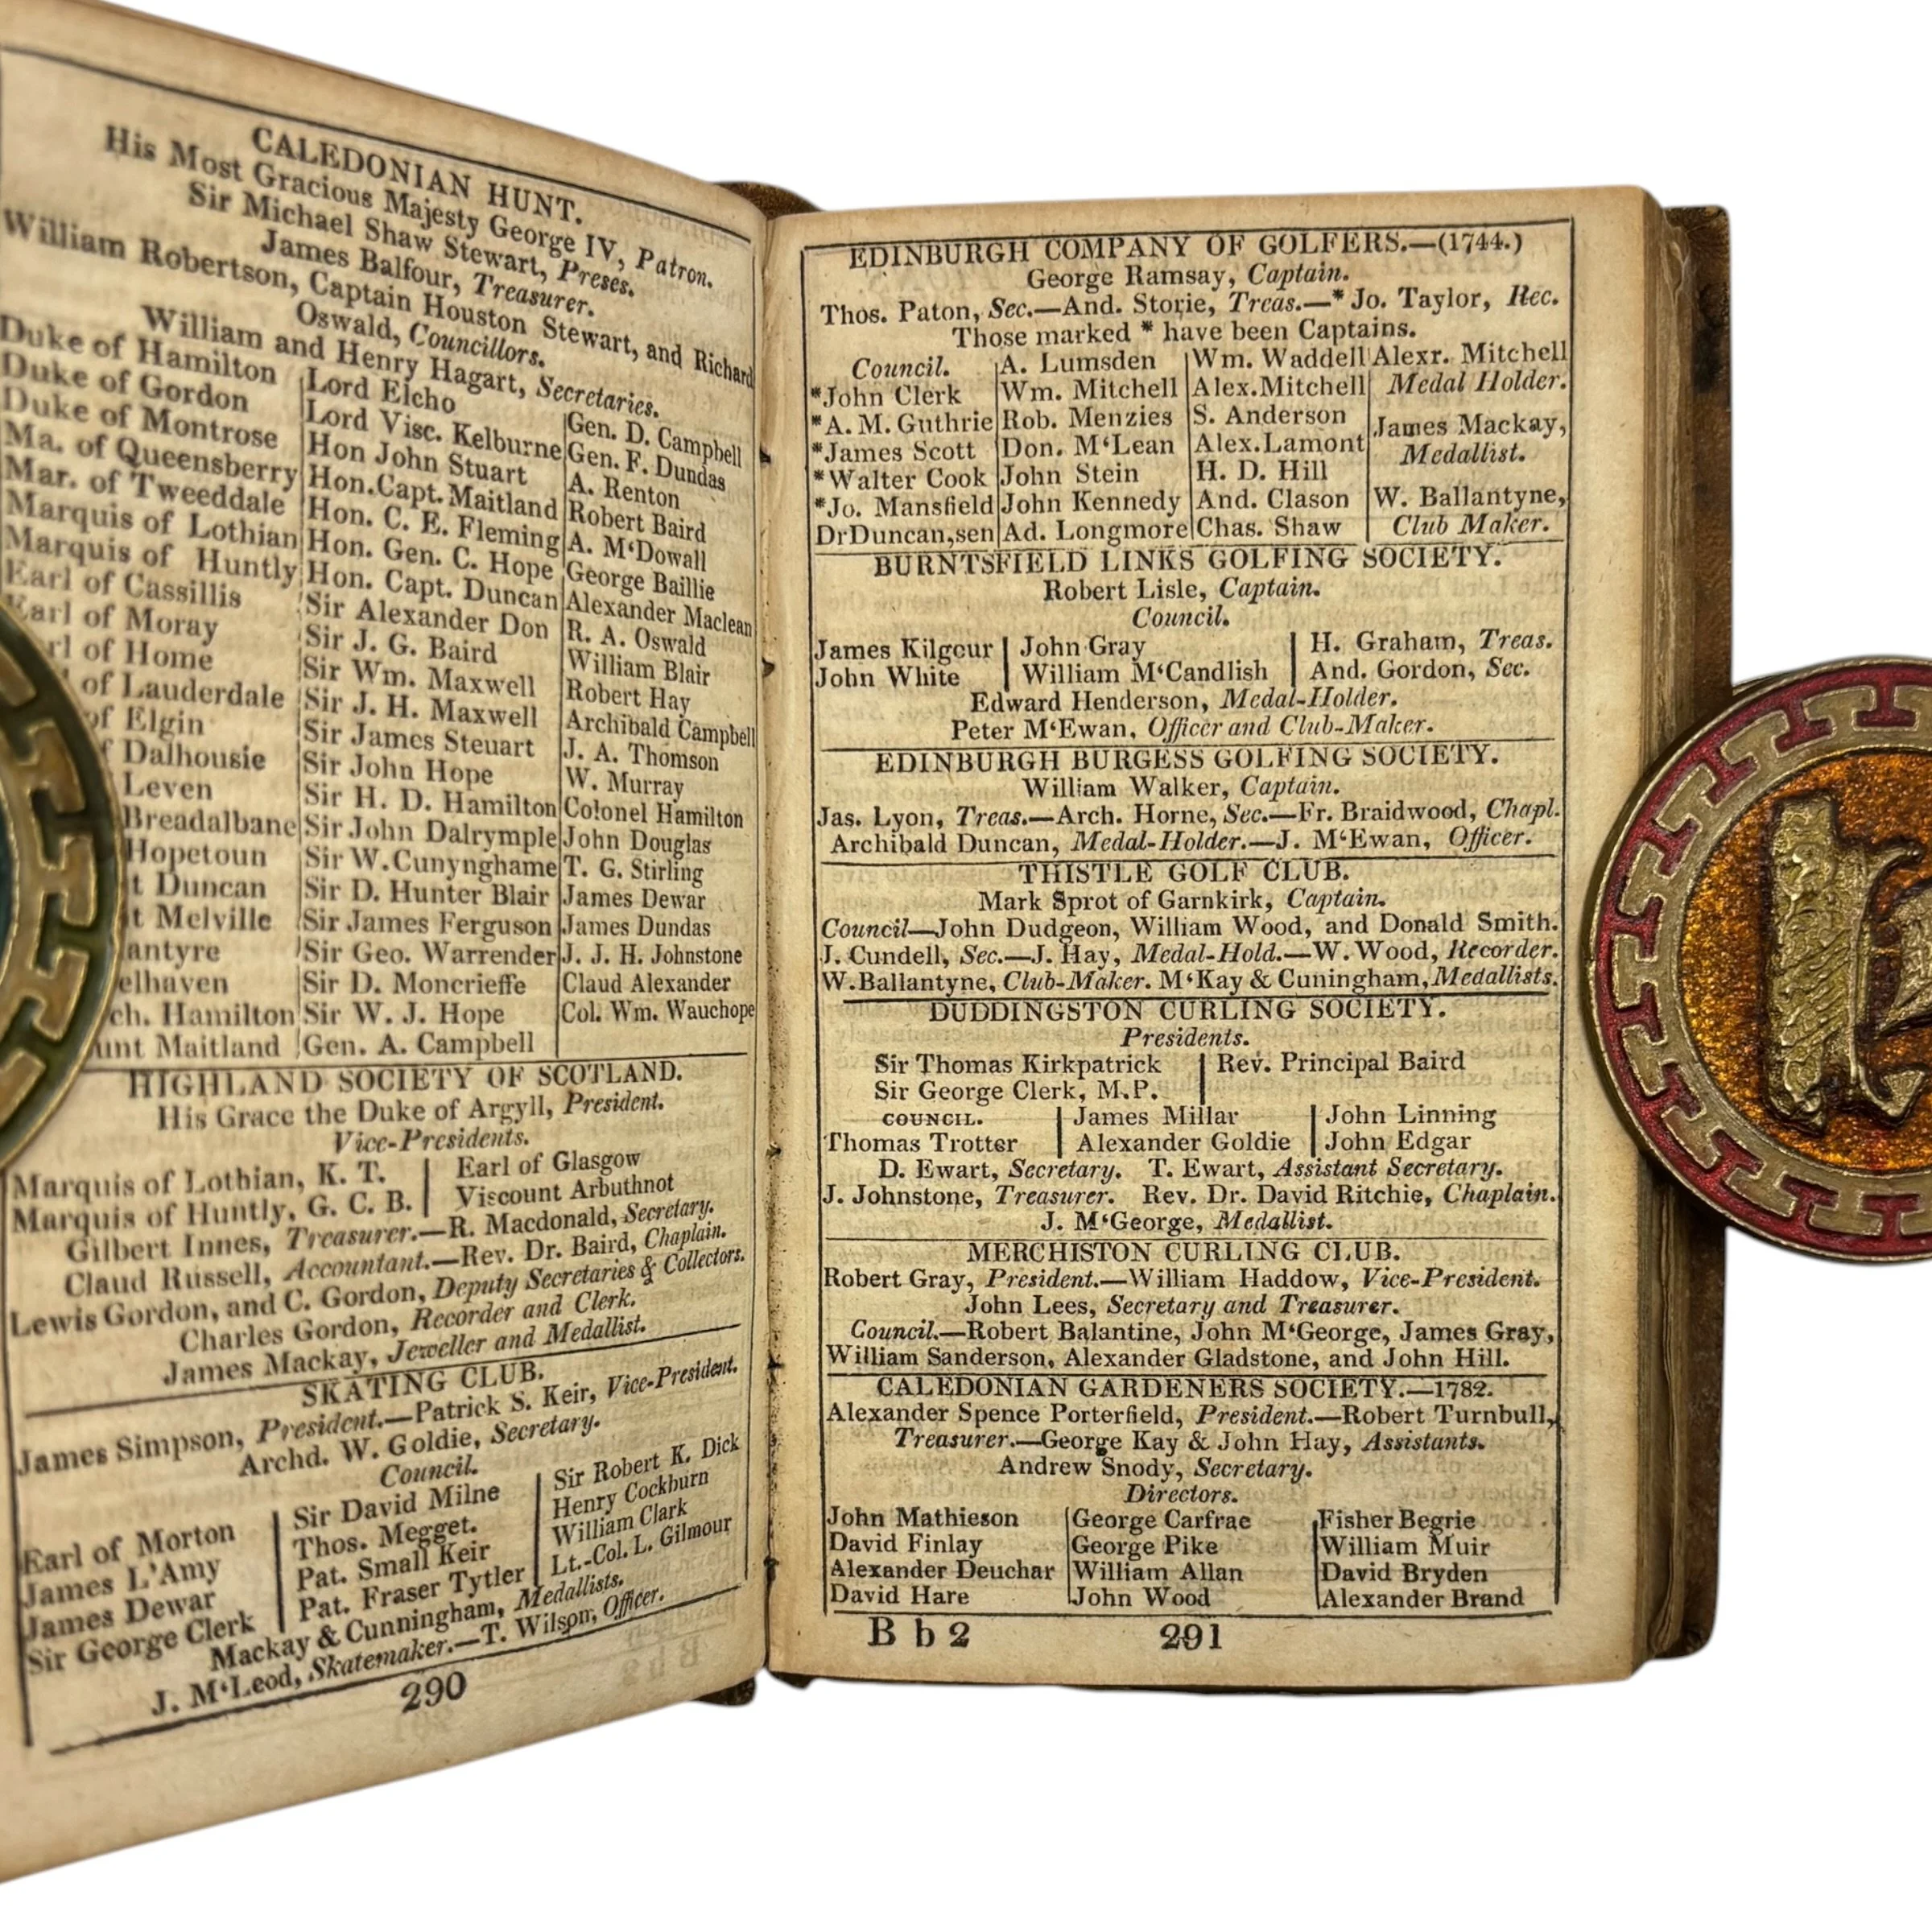 CALEDONIAN HUNT.
His Most Gracious Majesty George IV, Patron.
Sir Michael Shaw Stewart, Preses.
James Balfour, Treasurer.
William Robertson, Captain Houston Stewart, and Richard
Oswald, Councillors.
William and Henry Hagart, Secretaries.
Duke of Hamilton
Duke of Gordon
Duke of Montrose
Ma. of Queensberry
Mar. of Tweeddale
Marquis of Lothian
Marquis of Huntly
Earl of Cassillis
Earl of Moray
of Home
of Lauderdale
of Elgin
Dalhousie
Leven
Breadalbane
Hopetoun
Duncan
Melville
Hamilton
Maitland
Lord Elcho
Lord Visc. Kelburne
Hon John Stuart
Hon.Capt. Maitland
Hon. C. E. Fleming
Hon. Gen. C. Hope
Hon. Capt. Duncan
Sir Alexander Don
Sir J. G. Baird
Sir Wm. Maxwell
Sir J. H. Maxwell
Sir James Steuart
Sir John Hope
Sir H. D. Hamilton
Sir John Dalrymple
Sir W.Cunynghame
Sir D. Hunter Blair
Sir James Ferguson
Sir Geo. Warrender
Sir D. Moncrieffe
Sir W. J. Hope
Gen. A. Campbell
Gen. D. Campbell
Gen. F. Dundas
A. Renton
Robert Baird
A. M‘Dowall
George Baillie
Alexander Maclean
R. A. Oswald
William Blair
Robert Hay
Archibald Campbell
J. A. Thomson
W. Murray
Colonel Hamilton
John Douglas
T. G. Stirling
James Dewar
James Dundas
J. J. H. Johnstone
Claud Alexander
Col. Wm. Wauchope
HIGHLAND SOCIETY OF SCOTLAND.
His Grace the Duke of Argyll, President.
Vice-Presidents.
Marquis of Lothian, K. T.
Marquis of Huntly, G. C. B.
Earl of Glasgow
Viscount Arbuthnot
Gilbert Innes, Treasurer.—R. Macdonald, Secretary.
Claud Russell, Accountant.—Rev. Dr. Baird, Chaplain.
Lewis Gordon, and C. Gordon, Deputy Secretaries & Collectors.
Charles Gordon, Recorder and Clerk.
James Mackay, Jeweller and Medallist.
SKATING CLUB.
James Simpson, President.—Patrick S. Keir, Vice-President.
Archd. W. Goldie, Secretary.
Council.
Earl of Morton
James L'Amy
James Dewar
Sir George Clerk
Sir David Milne
Thos. Megget.
Pat. Small Keir
Pat. Fraser Tytler
Sir Robert K. Dick
Henry Cockburn
William Clark
Lt.-Col. L. Gilmour
Mackay & Cunningham, Medallists.
J. M‘Leod, Skatemaker.—T. Wilson, Officer.
290
EDINBURGH COMPANY OF GOLFERS.—(1744.)
George Ramsay, Captain.
Thos. Paton, Sec.—And. Storie, Treas.—* Jo. Taylor, Rec.
Those marked * have been Captains.
Council.
*John Clerk
*A. M. Guthrie
*James Scott
*Walter Cook
*Jo. Mansfield
DrDuncan,sen
A. Lumsden
Wm. Mitchell
Rob. Menzies
Don. M‘Lean
John Stein
John Kennedy
Ad. Longmore
Wm. Waddell
Alex.Mitchell
S. Anderson
Alex.Lamont
H. D. Hill
And. Clason
Chas. Shaw
Alexr. Mitchell
Medal Holder.
James Mackay,
Medallist.
W. Ballantyne,
Club Maker.
BURNTSFIELD LINKS GOLFING SOCIETY.
Robert Lisle, Captain.
Council.
James Kilgour
John White
John Gray
William M‘Candlish
H. Graham, Treas.
And. Gordon, Sec.
Edward Henderson, Medal-Holder.
Peter M‘Ewan, Officer and Club-Maker.
EDINBURGH BURGESS GOLFING SOCIETY.
William Walker, Captain.
Jas. Lyon, Treas.—Arch. Horne, Sec.—Fr. Braidwood, Chapl.
Archibald Duncan, Medal-Holder.—J. M‘Ewan, Officer.
THISTLE GOLF CLUB.
Mark Sprot of Garnkirk, Captain.
Council—John Dudgeon, William Wood, and Donald Smith.
J. Cundell, Sec.—J. Hay, Medal-Hold.—W. Wood, Recorder.
W.Ballantyne, Club-Maker. M‘Kay & Cuningham, Medallists.
DUDDINGSTON CURLING SOCIETY.
Presidents.
Sir Thomas Kirkpatrick
Sir George Clerk, M.P.
Rev. Principal Baird
COUNCIL.
Thomas Trotter
James Millar
Alexander Goldie
John Linning
John Edgar
D. Ewart, Secretary. T. Ewart, Assistant Secretary.
J. Johnstone, Treasurer. Rev. Dr. David Ritchie, Chaplain.
J. M‘George, Medallist.
MERCHISTON CURLING CLUB.
Robert Gray, President.—William Haddow, Vice-President.
John Lees, Secretary and Treasurer.
Council.—Robert Balantine, John M‘George, James Gray,
William Sanderson, Alexander Gladstone, and John Hill.
CALEDONIAN GARDENERS SOCIETY.—1782.
Alexander Spence Porterfield, President.—Robert Turnbull,
Treasurer.—George Kay & John Hay, Assistants.
Andrew Snody, Secretary.
Directors.
John Mathieson
David Finlay
Alexander Deuchar
David Hare
George Carfrae
George Pike
William Allan
John Wood
Fisher Begrie
William Muir
David Bryden
Alexander Brand
B b 2 291